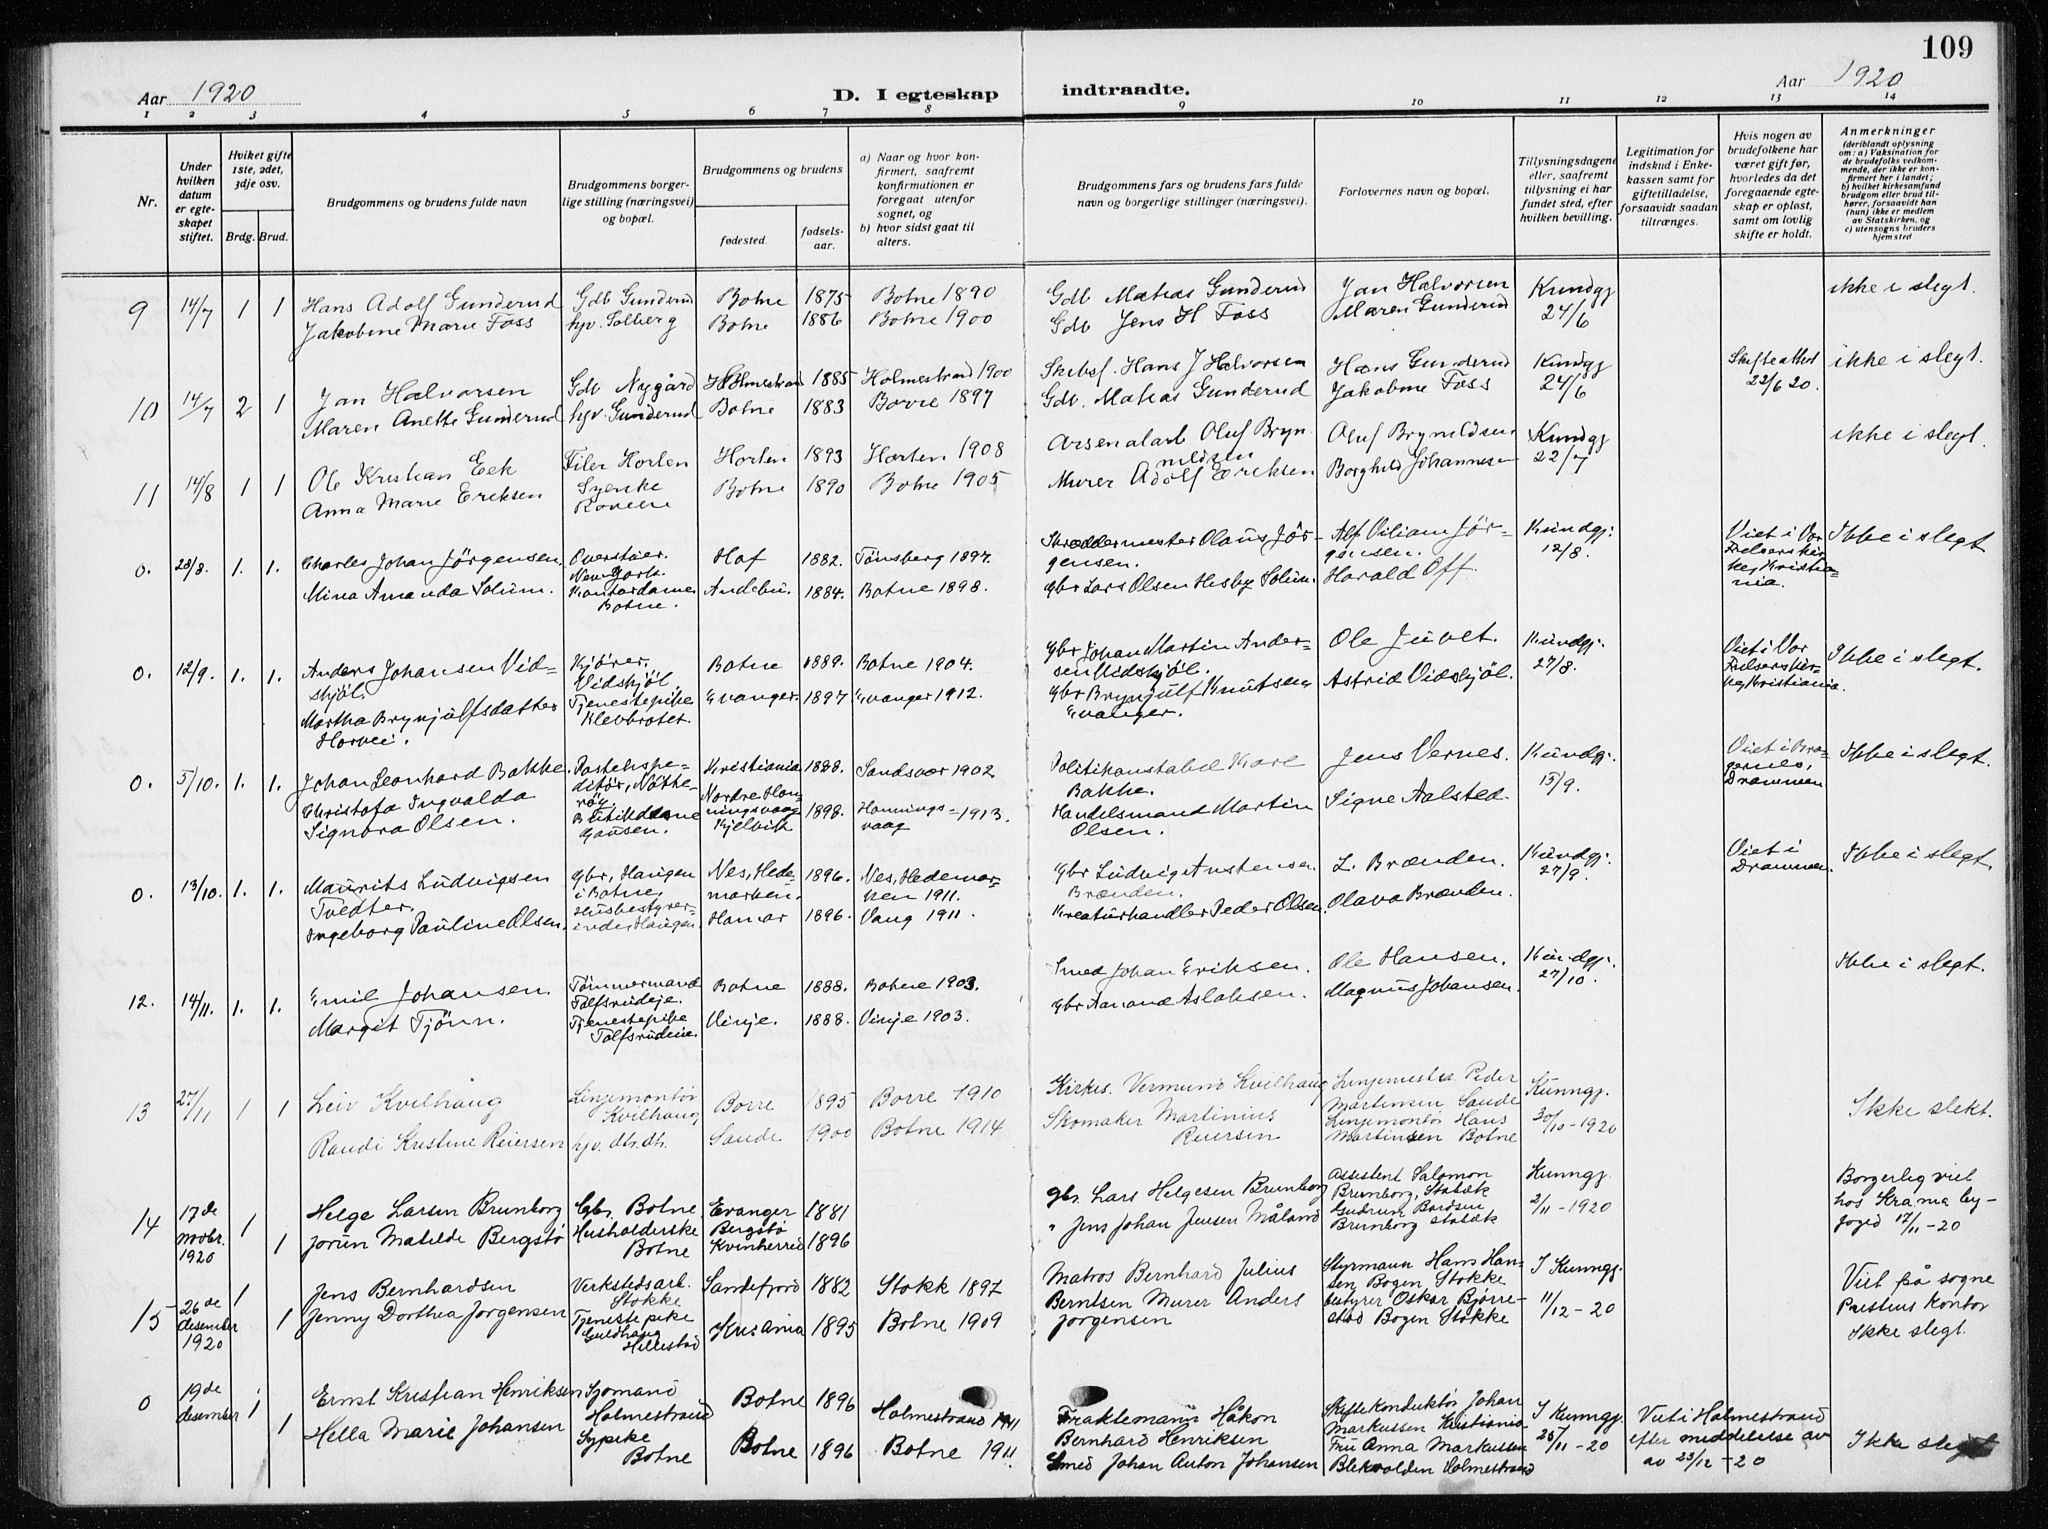 109
Aar 1920
D. I egteskap indtraadte.
Aar 1920
1 2 3 4 5 6 7 8 9 10 11 12 13 14
Nr.
Under hvilken datum er egteskapet stiftet.
Hviket gifte 1ste, 2det, 3dje osv.
Brdg. Brud.
Brudgommens og brudens fulde navn
Brudgommens borgerlige stilling (næringsvei) og bopæl.
Brudgommens og brudens
fødested.
fødselsaar.
a) Naar og hvor konfirmert, saafremt konfirmationen er foregaat utenfor sognet, og
b) hvor sidst gaat til alters.
Brudgommens fars og brudens fars fulde navn og borgerlige stillinger (næringsvei).
Forlovernes navn og bopæl.
Tillysningsdagene eller, saafremt tillysning ei har fundet sted, efter hvilken bevilling.
Legitimation for indskud i Enkekassen samt for giftetilladelse, forsaavidt saadan tiltrænges.
Hvis nogen av brudefolkene har været gift før, hvorledes da det foregaaende egteskap er opløst, samt om lovlig skifte er holdt.
Anmerkninger (deriblandt oplysning om: a) Vaksination for de brudefolks vedkommende, der ikke er konfirmert her i landet; b) hvilket kirkesamfund brudgom eller brud tilhører, forsaavidt han (hun) ikke er medlem av Statskirken, og c) utensogns bruders hjemsted
9 14/7 1 1 Hans Adolf Gunderud Gdb Gunderud Botne 1875 Botne 1890 Gdb Matias Gunderud Jan Halvorsen Kundgj 24/6 ikke i slegt.
Jakobine Marie Foss hjv. Solberg Botne 1886 Botne 1900 Gdb Jens H Foss Maren Gunderud
10 14/7 2 1 Jan Halvorsen Gdb Nygård Holmestrand 1885 Holmestrand 1900 Skibsf. Hans J Halvorsen Hans Gunderud Kundgj 24/6 Skifteattest 22/6 20. ikke i slegt.
Maren Anette Gunderud hjv. Gunderud Botne 1883 Borre 1897 Gdb. Matias Gunderud Jakobine Foss
11 14/8 1 1 Ole Kristian Eek Filer Horten Horten 1893 Horten 1908 Arsenalarb Oluf Brynildsen Oluf Brynildsen Kundgj 22/7 ikke i slegt.
Anna Marie Eriksen Syerske Botne 1890 Botne 1905 Murer Adolf Eriksen Borghild Johannesen
0. 28/8. 1. 1. Charles Johan Jörgensen. Overstuer. New York. Hof 1882. Tönsberg 1897. Skræddermester Olaus Jörgensen. Alf Viliam Jörgensen. Kundgj: 12/8. Viet i Vor Frelsers kirke, Kristiania. Ikke i slegt
Mina Amanda Solum. Kontordame Botne. Andebu. 1884. Botne 1898. Gbr Lars Olsen Hesby Solum. Harald Off.
0. 12/9. 1. 1. Anders Johansen Vidskjöl. Kjörer. Vidskjöl Botne 1889. Botne 1904. Gbr Johan Martin Andersen Vidskjöl. Ole Juvet. Kundgj: 27/8. Viet i Vor Frelsers kirke, Kristiania. Ikke i slegt.
Martha Brynjulfsdatter Horvei. Tjenestepike Klevbrotet. Evanger. 1897 Evanger 1912. Gbr Brynjulf Knutsen Evanger. Astrid Vidskjöl.
0. 5/10. 1. 1. Johan Leonhard Bakke. Postekspeditör, Nötteröy. Kristiania 1888. Sandsvær 1902. Politikonstabel Kare Bakke. Jens Vernes. Kundgj: 15/9. Viet i Bragernes, Drammen Ikke i slegt.
Christofa Ingvalda Signora Olsen. Butikdame Gausen. Nordre Honningsvaag Kjelvik 1898. Honningsvaag 1913. Handelsmand Martin Olsen. Signe Aalsted.
0. 13/10. 1. 1. Maurits Ludvigsen Tvedter. Gbr, Haugen i Botne. Nes, Hedemarken. 1896. Nes, Hedemarken 1911. Gbr Ludvig Austensen Brænden. L. Brænden. Kundgj: 27/9. Viet i Drammen. Ikke i slegt.
Ingeborg Pauline Olsen. Husbestyrerinde Haugen. Hamar 1896. Vang 1911. Kreaturhandler Peder Olsen. Olava Brænden.
12. 14/11. 1. 1. Emil Johansen. Tömmermand Tolfsrudeje. Botne 1888. Botne 1903. Smed Johan Eriksen. Ole Hansen. Kundgj: 27/10. Ikke i slegt.
Margit Tjönn. Tjenestepike Tolfsrudeie. Vinje. 1888. Vinje 1903. Gbr Aanund Aslaksen. Magnus Johansen.
13 27/11 1 1 Leiv Kvilhaug Linjemontör Kvilhaug Borre 1895 Borre 1910 Kirkes. Vermund Kvilhaug Linjemester Peder Martensen Sande Kunngj. 30/10-1920 Ikke slekt.
Randi Kristine Reiersen hjv. dh. dh. Sande 1900 Botne 1914 Skomaker Martinius Reiersen Linjemontör Hans Martinsen Botne
14 17de novbr. 1920 1 Helge Larsen Brunborg Gbr. Botne Evanger 1881 gbr. Lars Helgesen Brunborg Assistent Salomon Brunborg, Stabæk Kunngj. 2/11-1920 Borgerlig viet hos Kra.ma byfogd 17/11-20
1 Jorun Matilde Bergstø Husholderske Botne Bergstø Kvinherred 1896 " Jens Johan Jensen Måland Gudrun Bardsen Brunborg Stabæk
15 26de desember 1920 1 Jens Bernhardsen Verkstedsarb. Stokke Sandefjord 1882 Stokk 1897 Matros Bernhard Julius Berntsen Styrmann Hans Hansen Bogen Stokke I Kunngj. 11/12-20 Viet på sogneprestens kontor Ikke slegt.
1 Jenny Dorthea Jorgensen Tjenestepike Guldhaug Hillestad Kr:ania 1895 Botne 1909 Murer Anders Jorgensen bestyrer Oskar Bjørrestad Bogen Stokke
0 19de desember 1 Ernst Kristian Henriksen Sjomand Holmestrand Botne 1896 Holmestrand 1911 Fraktemann Håkon Bernhard Henriksen Skiftekonduktör Johan Markussen Kristiania I Kunngj. 25/11-20 Viet i Holmestrand efter meddelelse av av 23/12-20 Ikke slegt
1 Hella Marie Johansen Sypike Botne Botne 1896 Botne 1911. Smed Johan Anton Johansen Fru Anna Markussen Holmestrand